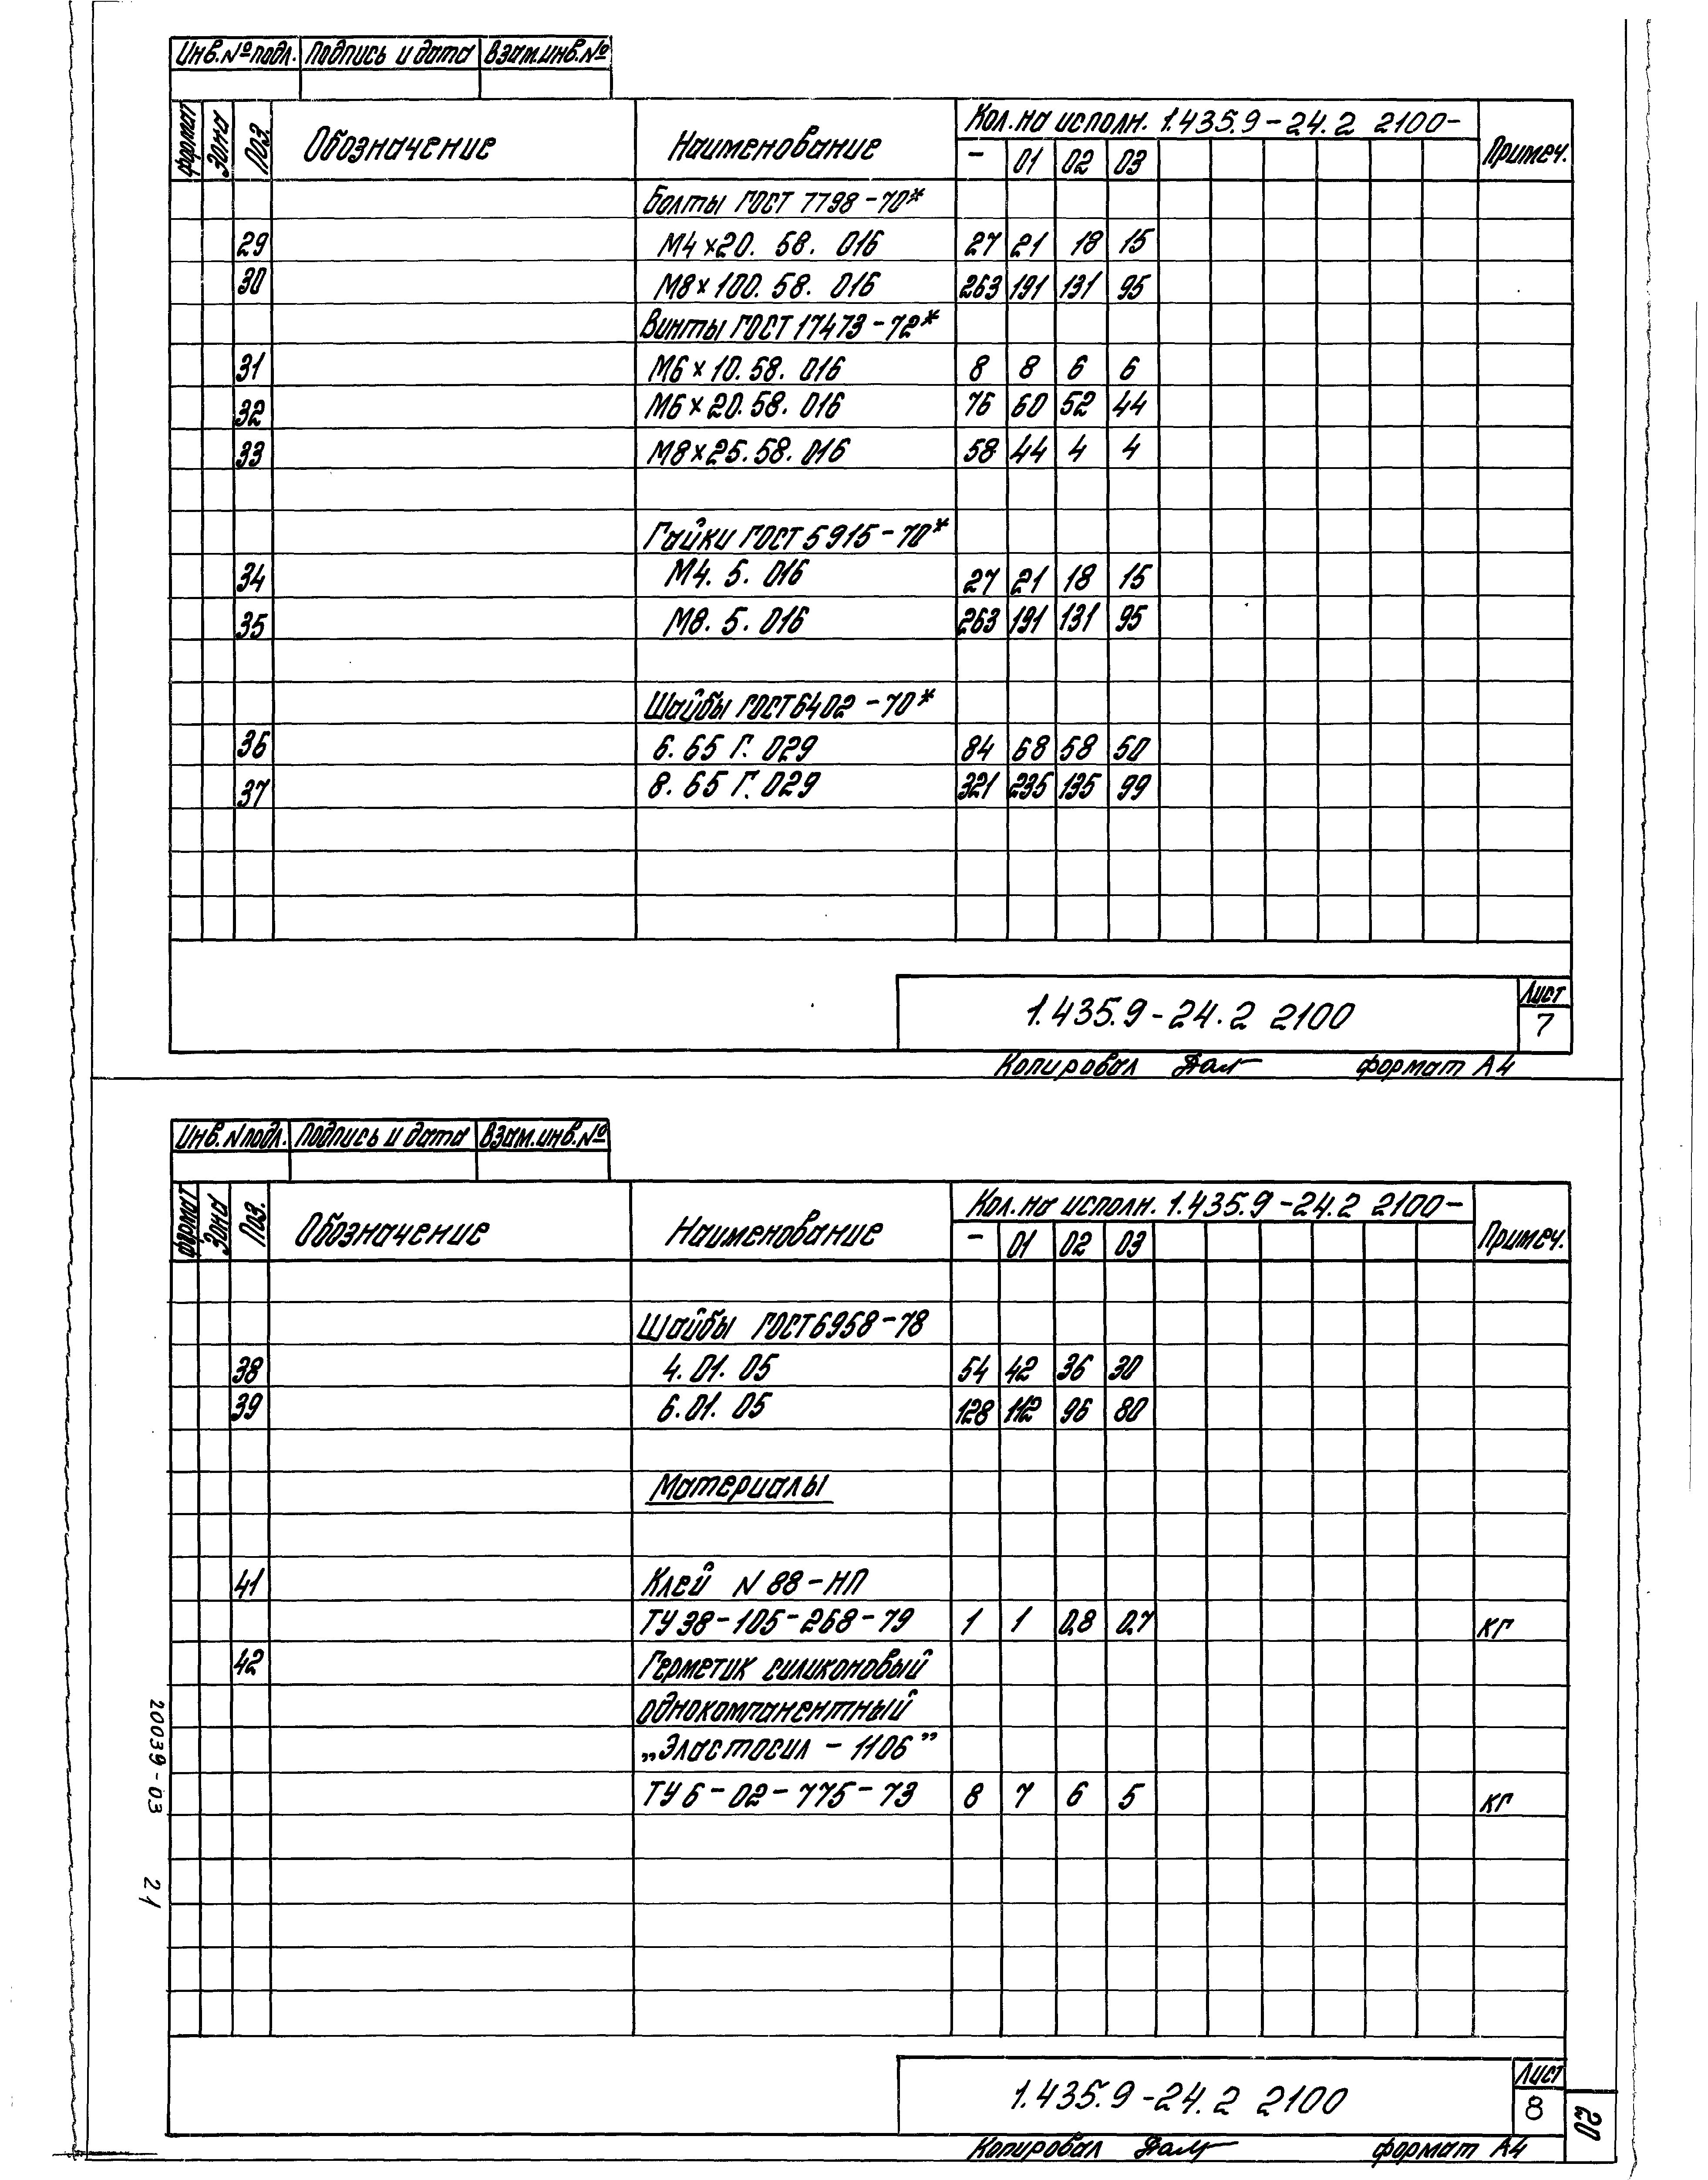 Инв.№ подл. Подпись и дата Взам.инв.№
формат Зона Поз. Обозначение Наименование Кол. на исполн. 1.435.9-24.2 2100- Примеч.
- 01 02 03
Болты ГОСТ 7798-70*
29 М4×20. 58. 016 27 21 18 15
30 М8×100. 58. 016 263 191 131 95
Винты ГОСТ 17473-72*
31 М6×10. 58. 016 8 8 6 6
32 М6×20. 58. 016 76 60 52 44
33 М8×25. 58. 016 58 44 4 4
Гайки ГОСТ 5915-70*
34 М4. 5. 016 27 21 18 15
35 М8. 5. 016 263 191 131 95
Шайбы ГОСТ 6402-70*
36 6. 65 Г. 029 84 68 58 50
37 8. 65 Г. 029 321 235 135 99
1.435.9-24.2 2100
Лист
7
Копировал формат А4
Инв. N подл. Подпись и дата Взам.инв.№
формат Зона Поз. Обозначение Наименование Кол. на исполн. 1.435.9-24.2 2100- Примеч.
- 01 02 03
Шайбы ГОСТ 6958-78
38 4. 01. 05 54 42 36 30
39 6. 01. 05 128 112 96 80
Материалы
41 Клей N 88-НП
ТУ 38-105-268-79 1 1 0,8 0,7 кг
42 Герметик силиконовый
однокомпанентный
„Эластосил-1106”
ТУ 6-02-775-73 8 7 6 5 кг
20039-03 21
1.435.9-24.2 2100
Лист
8
20
Копировал формат А4